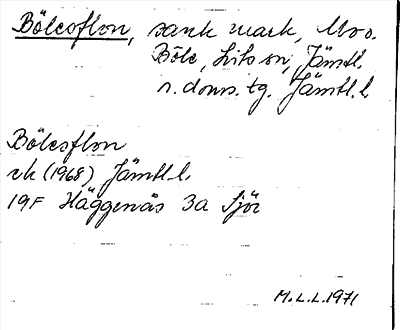 Bölesflon, sank mark, NVo.
Böle, Lits sn, Jämtl.
n. doms. tg. Jämtl. l.
Bölesflon
ek (1968) Jämtl. l.
19F Häggenås 3a Sjör
M.L.L. 1971